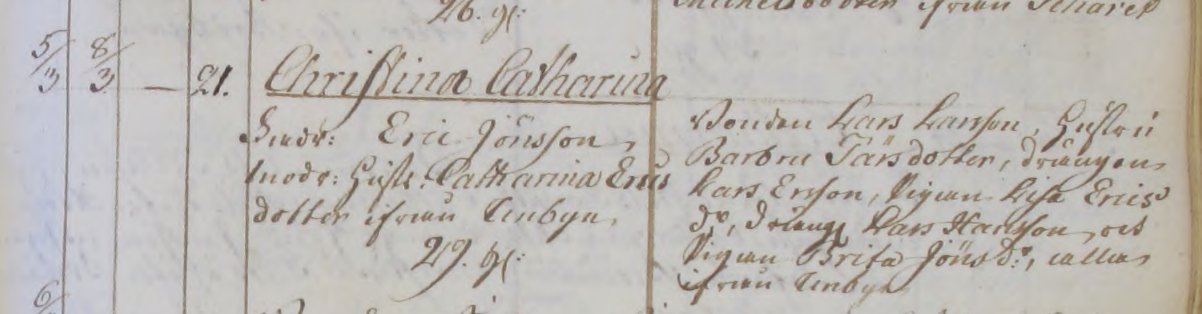 26. åhr:
ifrån
5/3 8/3 — 21. Christina Catharina
Fadr: Eric Jönsson,
Modr: Hustr: Catharina Erics
dotter ifrån
29. åhr:
Bonden Lars Larsson, Hustru
Barbru dotter, drängen
Lars Ersson, Pigan Lisa Erics
dr, dräng Lars Hansson, och
Pigan Brita Jöns dr, alla
ifrån
6/